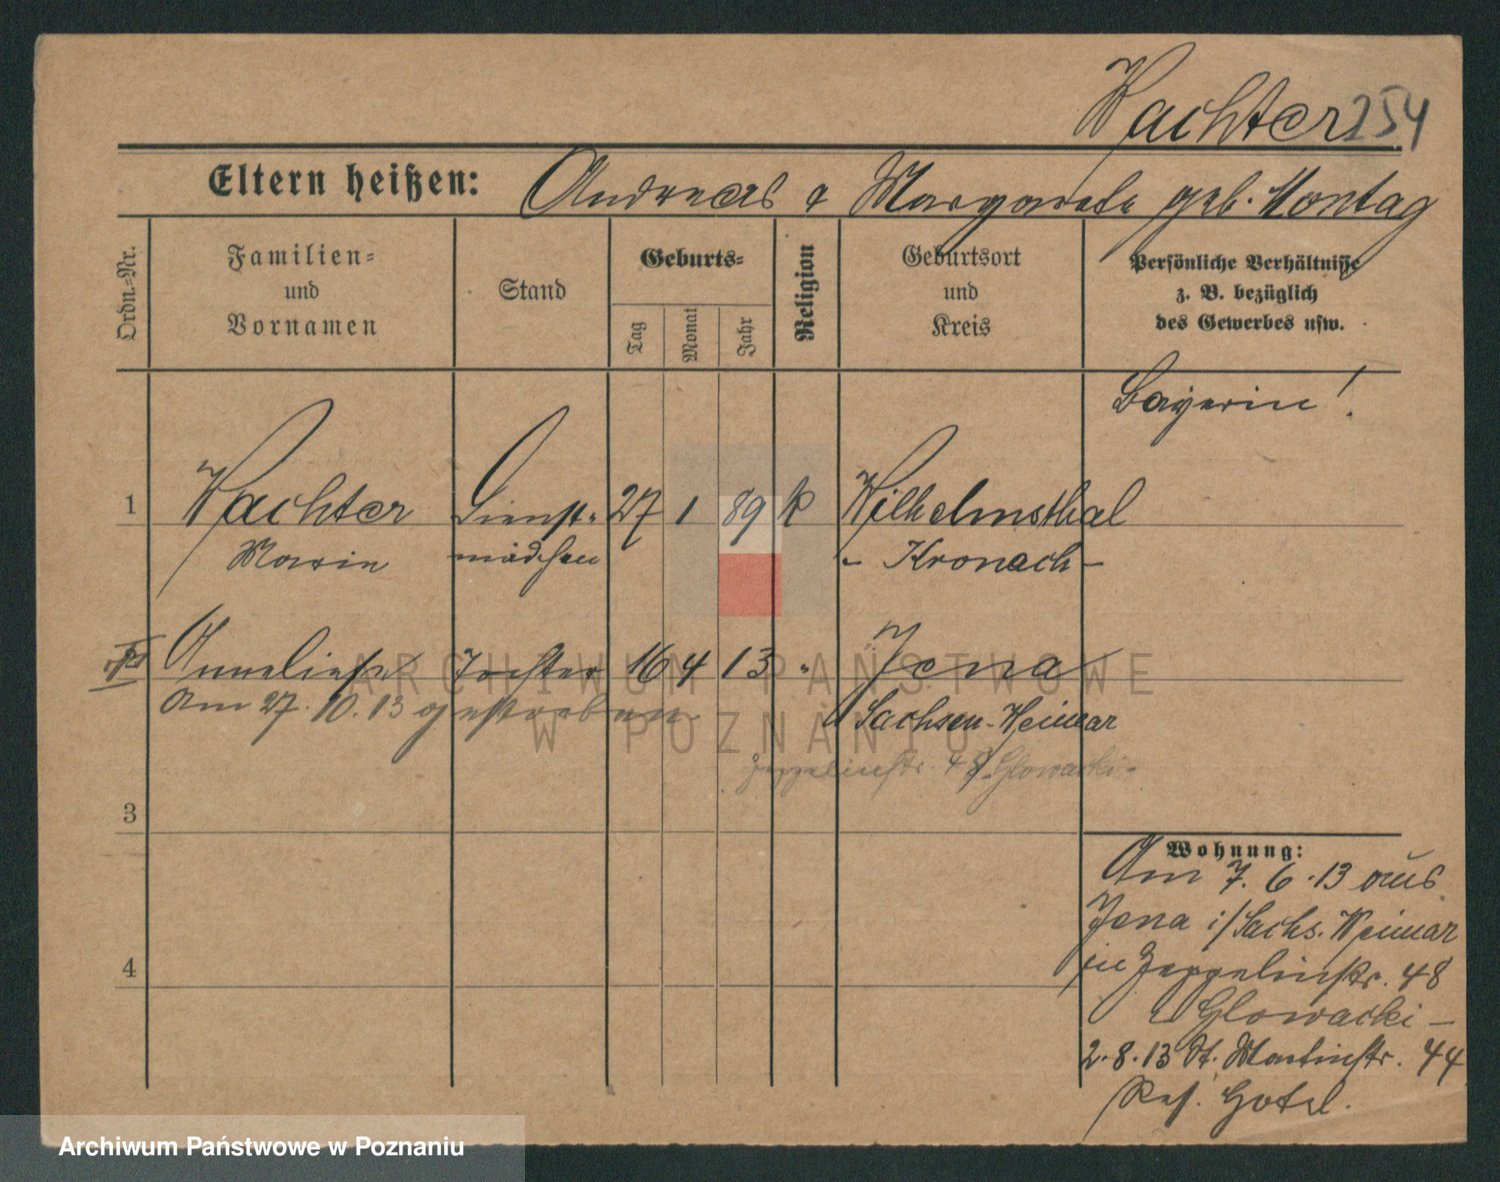 Wachter 254
Eltern heißen: Andreas & Margarete geb. Montag
Ordn.-Nr.
Familien-
und
Vornamen
Stand
Geburts-
Tag
Monat
Jahr
Religion
Geburtsort
und
Kreis
Persönliche Verhältnisse
z. B. bezüglich
des Gewerbes usw.
Bayerin!
1 Wachter Dienst- 27 1 89 k Wilhelmsthal
Marie mädchen - Kronach -
Anneliese Tochter 16 4 13 " Jena
Am 27. 10. 13 gestorben Sachsen-Weimar
Zeppelinstr. 48 Glowacki -
3
Wohnung:
Am 7. 6. 13 aus
Jena i/Sachs. Weimar
in Zeppelinstr. 48
Glowacki -
4
2. 8. 13 St. Martinstr. 44
Hotel.
ARCHIWUM PAŃSTWOWE
W POZNANIU
Archiwum Państwowe w Poznaniu